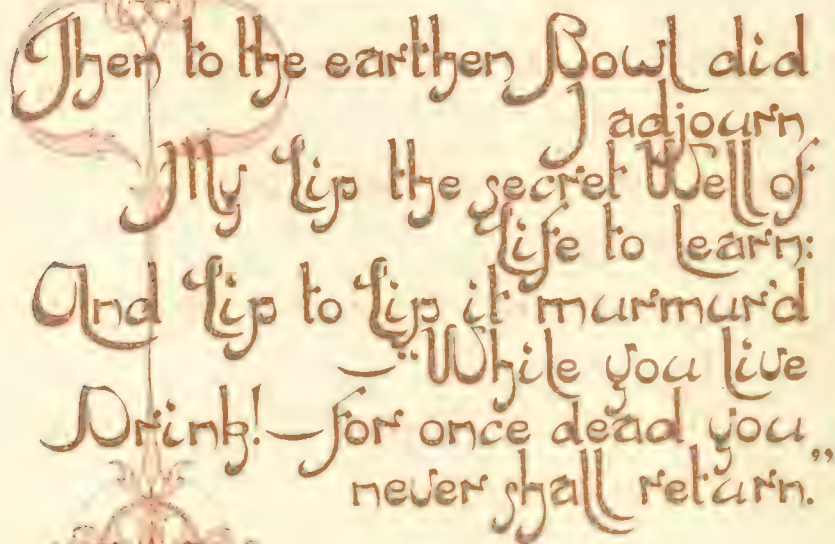 Then to the earthen Bowl did
I adjourn
My Lip the secret Well of
Life to learn:
And Lip to Lip it murmur'd
—"While you live
Drink!—for once dead you
never shall return."